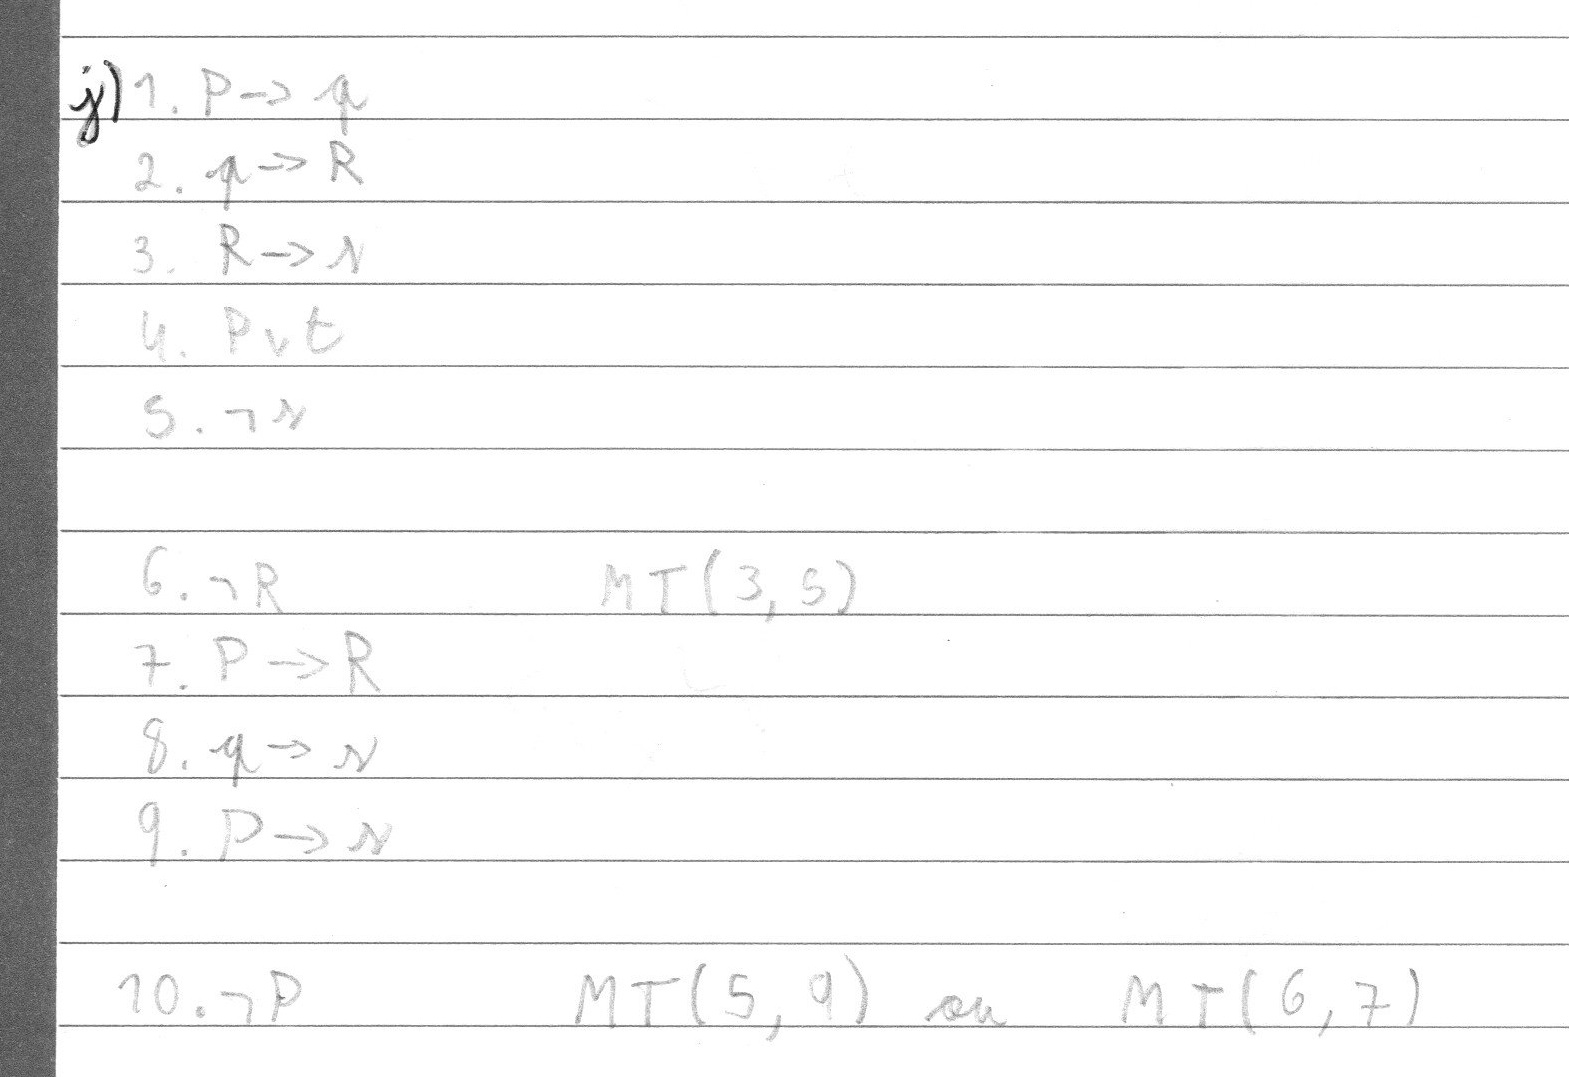 j) 1. P → q
2. q → R
3. R → s
4. P ∨ t
5. ¬s
6. ¬R MT(3,5)
7. P → R
8. q → s
9. P → s
10. ¬P MT(5,9) ou MT(6,7)